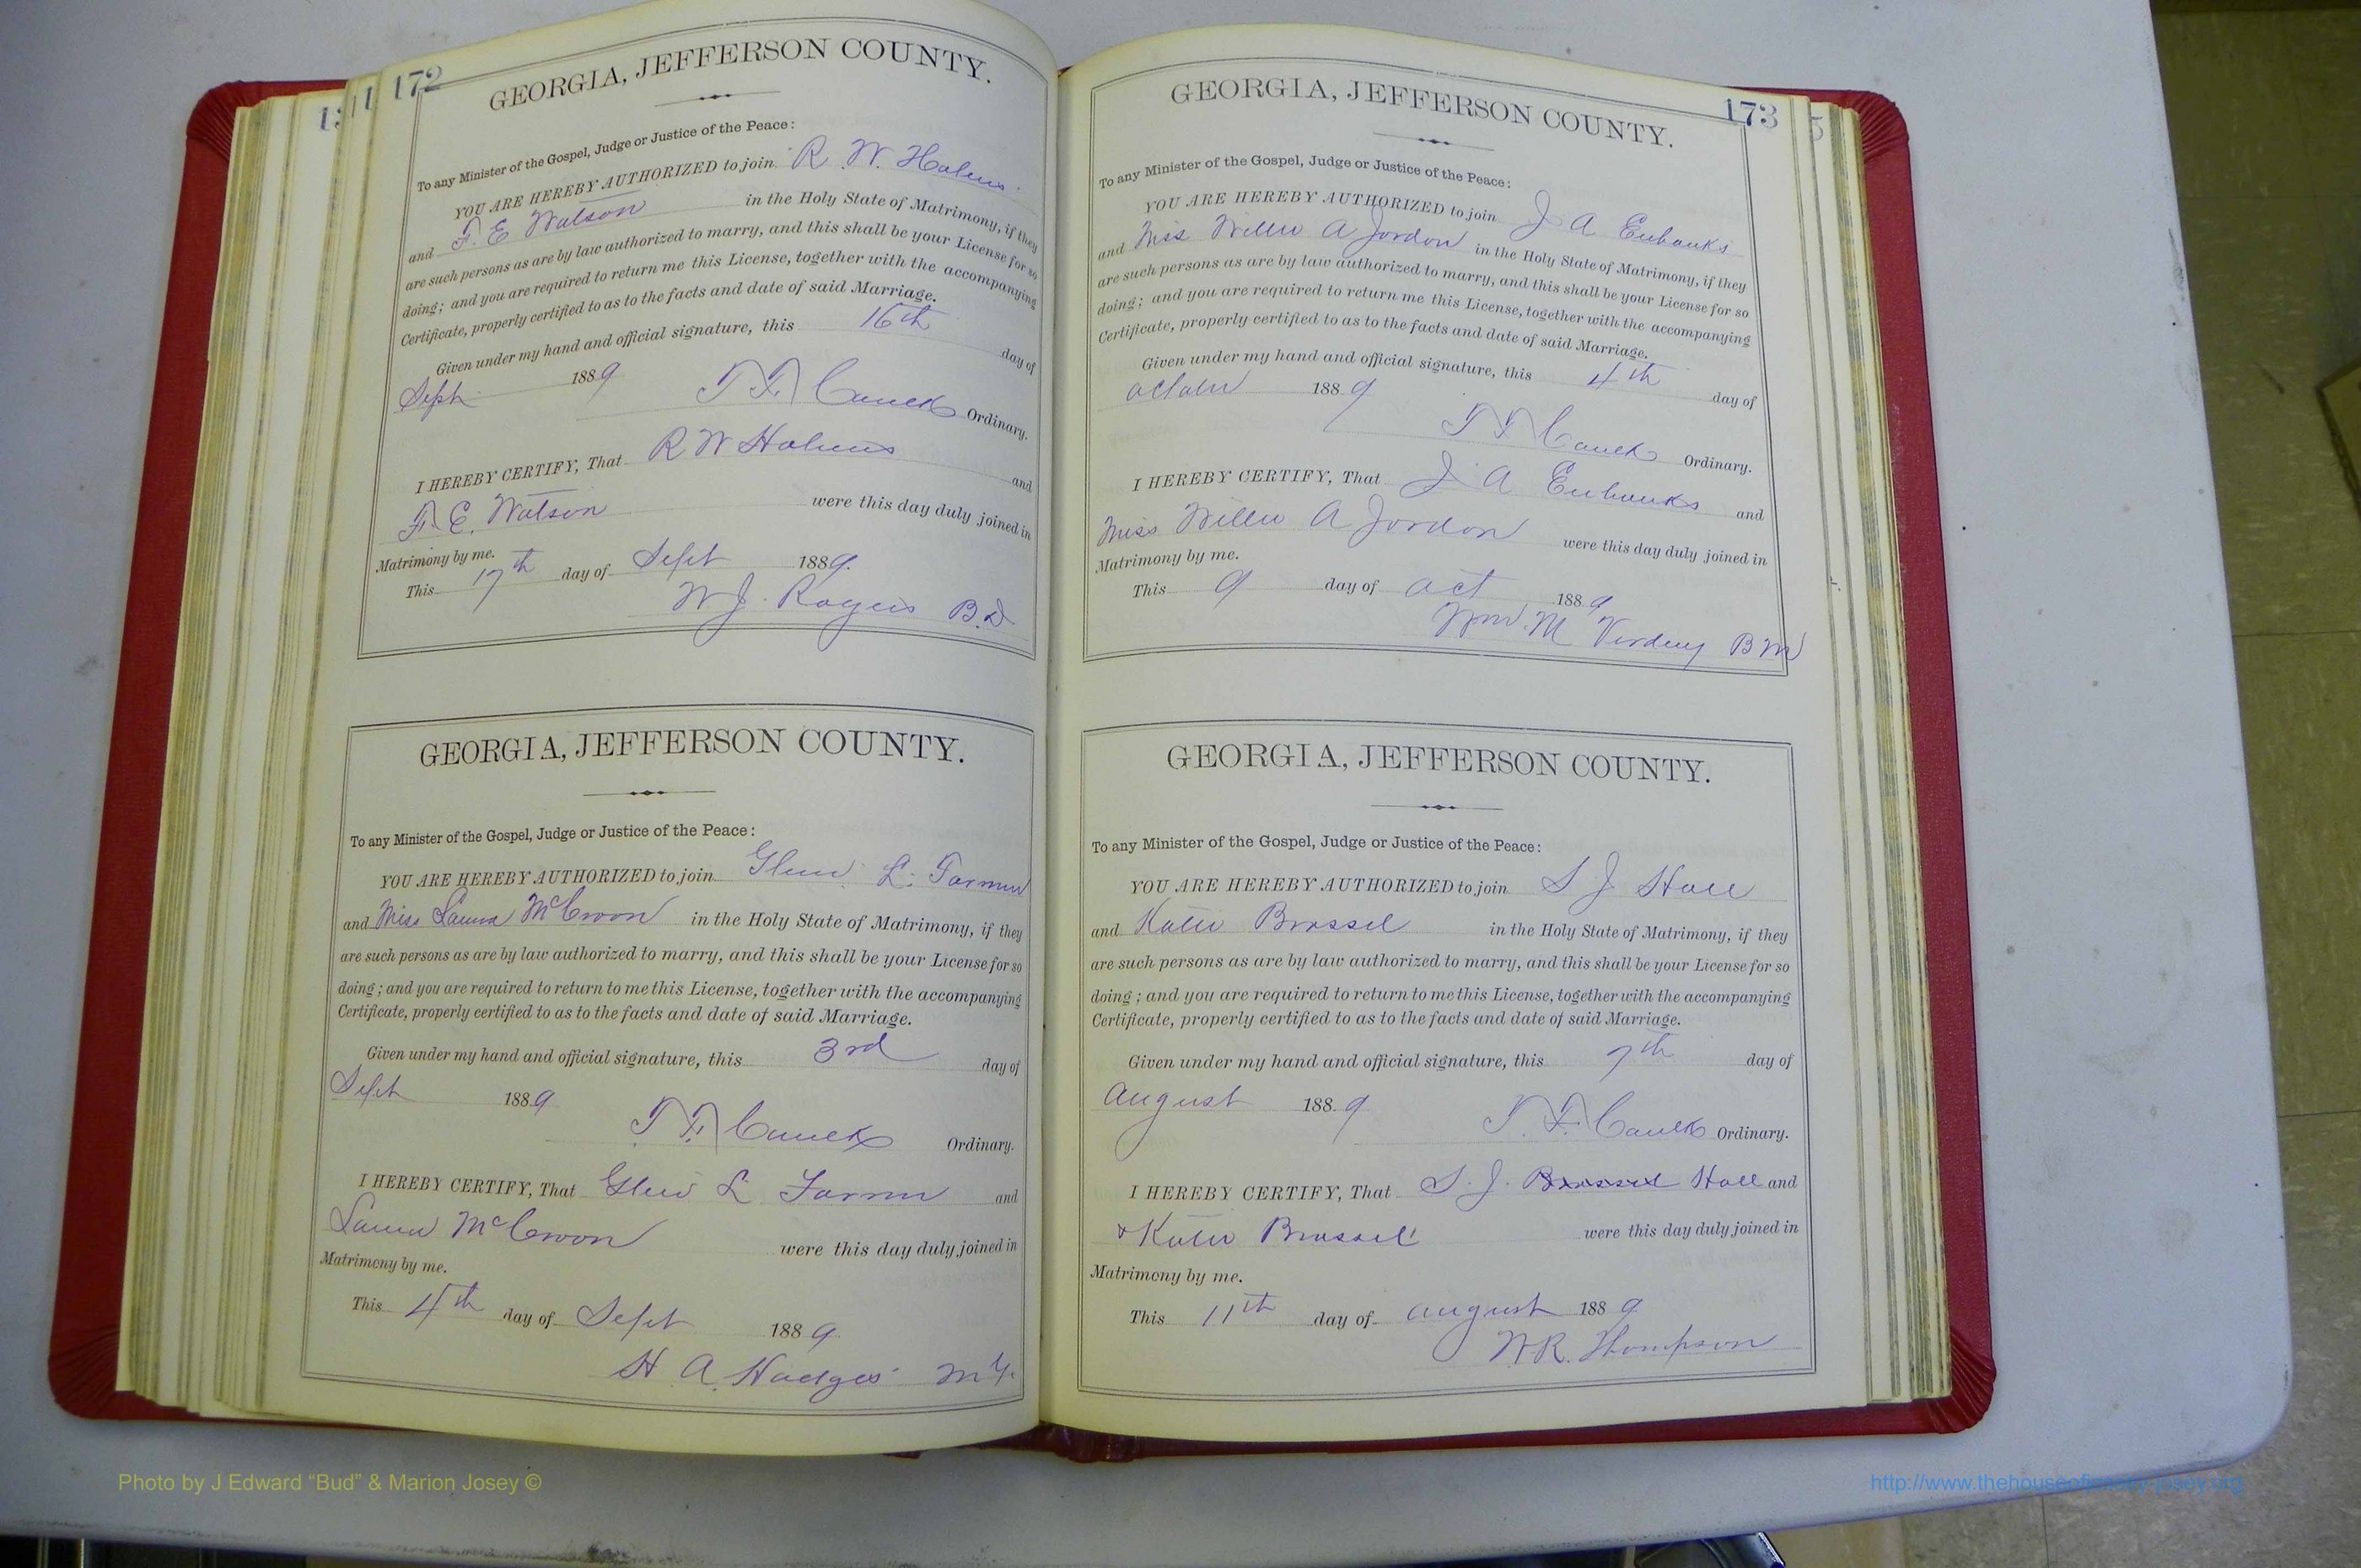 172
GEORGIA, JEFFERSON COUNTY.
To any Minister of the Gospel, Judge or Justice of the Peace:
YOU ARE HEREBY AUTHORIZED to join R. W.
and F. E Watson in the Holy State of Matrimony, if they
are such persons as are by law authorized to marry, and this shall be your License for so
doing; and you are required to return me this License, together with the accompanying
Certificate, properly certified to as to the facts and date of said Marriage.
Given under my hand and official signature, this 16th day of
Sept 1889
T. F. Ordinary.
I HEREBY CERTIFY, That R W and
F. E. Watson were this day duly joined in
Matrimony by me.
This 17th day of Sept 1889.
W J. Rogers B.D
GEORGIA, JEFFERSON COUNTY.
To any Minister of the Gospel, Judge or Justice of the Peace:
YOU ARE HEREBY AUTHORIZED to join L.
and Miss Laura McCroon in the Holy State of Matrimony, if they
are such persons as are by law authorized to marry, and this shall be your License for so
doing; and you are required to return to me this License, together with the accompanying
Certificate, properly certified to as to the facts and date of said Marriage.
Given under my hand and official signature, this 3rd day of
Sept 1889
T. F. Ordinary.
I HEREBY CERTIFY, That L and
Laura McCroon were this day duly joined in
Matrimony by me.
This 4th day of Sept 1889.
H A. Hodges
173
GEORGIA, JEFFERSON COUNTY.
To any Minister of the Gospel, Judge or Justice of the Peace:
YOU ARE HEREBY AUTHORIZED to join J A Eubanks
and Miss Willie A Jordon in the Holy State of Matrimony, if they
are such persons as are by law authorized to marry, and this shall be your License for so
doing; and you are required to return me this License, together with the accompanying
Certificate, properly certified to as to the facts and date of said Marriage.
Given under my hand and official signature, this 4th day of
October 1889
T F Ordinary.
I HEREBY CERTIFY, That J A Eubanks and
Miss Willie A Jordon were this day duly joined in
Matrimony by me.
This 9 day of Oct 1889
Wm. M Verdery B M
GEORGIA, JEFFERSON COUNTY.
To any Minister of the Gospel, Judge or Justice of the Peace:
YOU ARE HEREBY AUTHORIZED to join S J Hall
and Katie Brassel in the Holy State of Matrimony, if they
are such persons as are by law authorized to marry, and this shall be your License for so
doing; and you are required to return to me this License, together with the accompanying
Certificate, properly certified to as to the facts and date of said Marriage.
Given under my hand and official signature, this 7th day of
August 1889
T. F. Ordinary.
I HEREBY CERTIFY, That S. J. Brassel Hall and
Katie Brassel were this day duly joined in
Matrimony by me.
This 11th day of August 1889
W.R. Thompson
Photo by J Edward “Bud” & Marion Josey ©